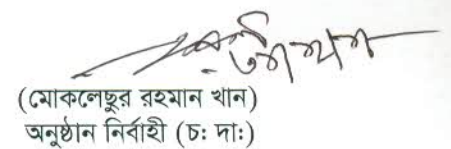 (মোকলেছুর রহমান খান)
অনুষ্ঠান নির্বাহী (চ: দা:)